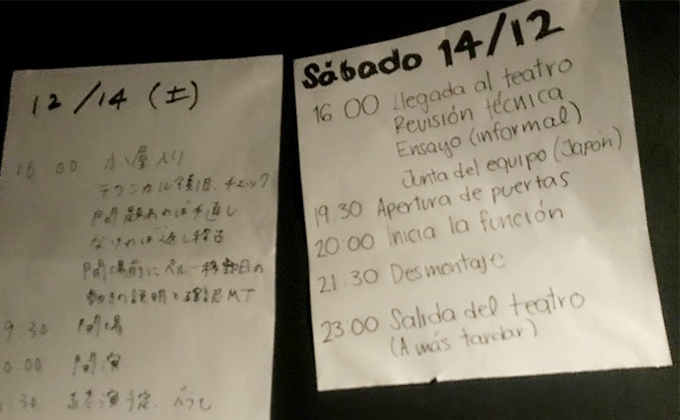 12/14 (土)
16:00 小屋入り
テクニカル復旧、チェック
問題あれば手直し
なければ返し稽古
開場前にペルー移動日の
動きの説明と確認MT
9:30 開場
0:00 開演
:30 終演予定
Sábado 14/12
16 00 Llegada al teatro
Revisión técnica
Ensayo (informal)
Junta del equipo (Japón)
19:30 Apertura de puertas
20:00 Inicia la función
21:30 Desmontaje
23:00 Salida del teatro
(A más tardar)